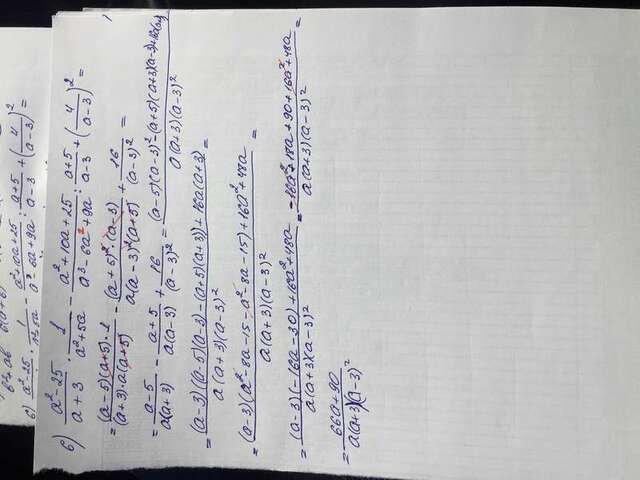 б) \frac{a²-25}{a+3} · \frac{1}{a²+5a} - \frac{a²+10a+25}{a³-6a²+9a} : \frac{a+5}{a-3} + (\frac{4}{a-3})² =
= \frac{(a-5)(a+5)·1}{(a+3)·a(a+5)} - \frac{(a+5)²·(a-3)}{a(a-3)²(a+5)} + \frac{16}{(a-3)²} =
= \frac{a-5}{a(a+3)} - \frac{a+5}{a(a-3)} + \frac{16}{(a-3)²} = \frac{(a-5)(a-3)²-(a+5)(a+3)(a-3)+16a(a+3)}{a(a+3)(a-3)²} =
= \frac{(a-3)((a-5)(a-3)-(a+5)(a+3))+16a(a+3)}{a(a+3)(a-3)²} =
= \frac{(a-3)(a²-8a-15-a²-8a-15)+16a²+48a}{a(a+3)(a-3)²} =
= \frac{(a-3)(-16a-30)+16a²+48a}{a(a+3)(a-3)²} = \frac{-16a²+18a+90+16a²+48a}{a(a+3)(a-3)²} =
= \frac{66a+90}{a(a+3)(a-3)²}